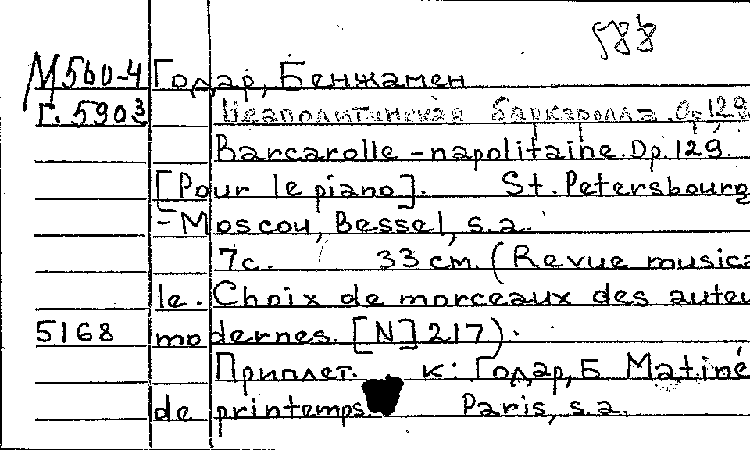 588
М560-4 Годар, Бенжамен
Г. 5903 Неаполитинская баркаролла. Op. 129
Barcarolle-napolitaine. Op. 129
[Pour le piano]. St. Petersbourg
-Moscou, Bessel, s.a.
7с. 33 см. (Revue musica
le. Choix de morceaux des auteu
5168 modernes. [N] 217).
Приплет. к: Годар, Б. Matiné
de printemps. Paris, s.a.